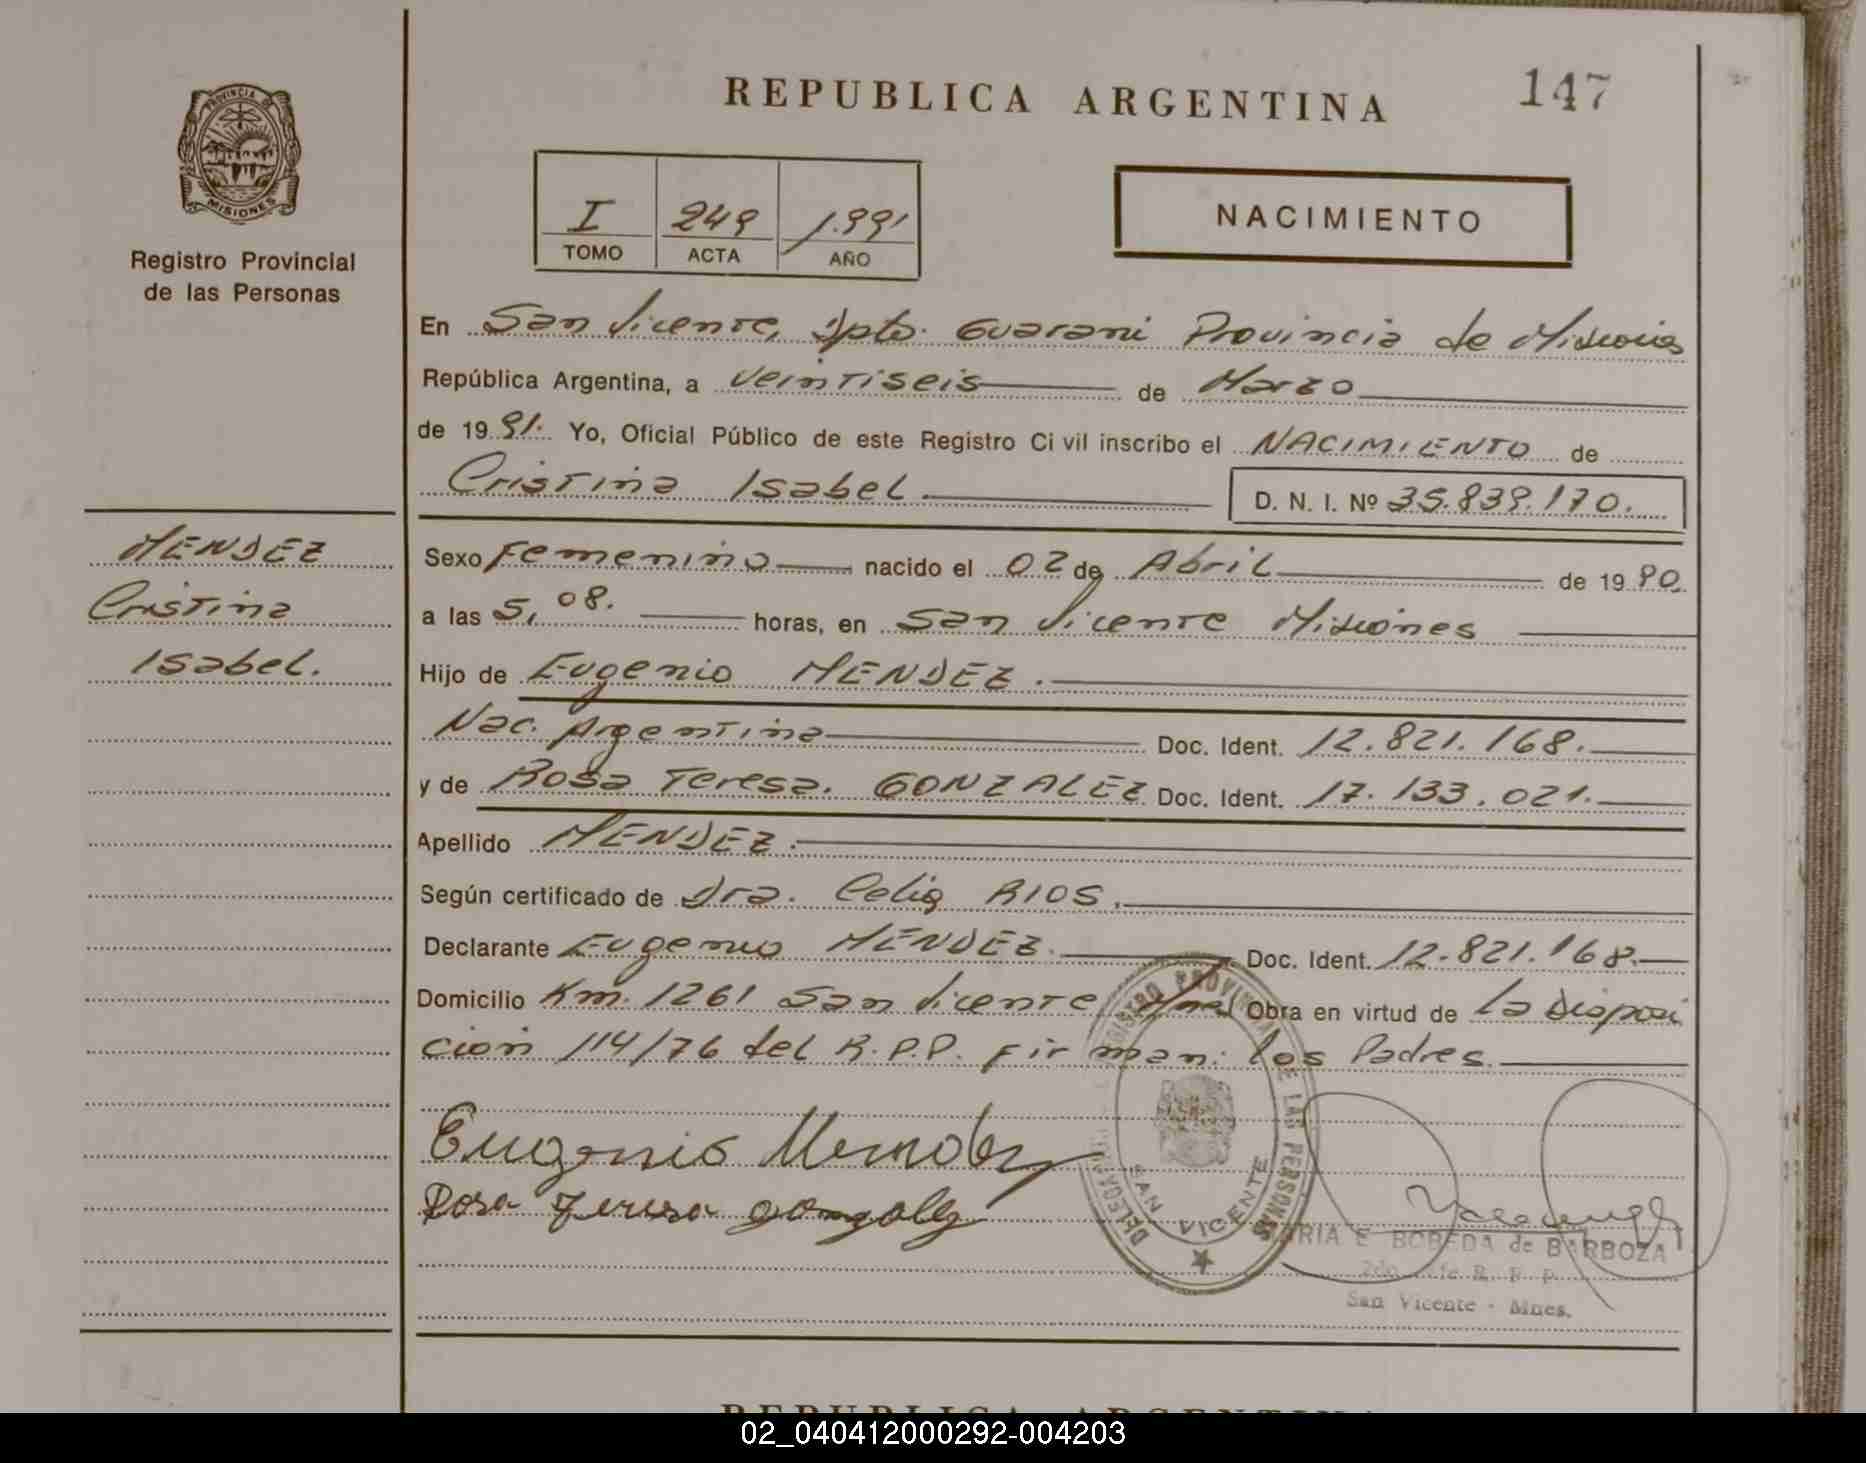 REPUBLICA ARGENTINA
147
PROVINCIA DE
MISIONES
Registro Provincial
de las Personas
I 249 1.991
TOMO ACTA AÑO
NACIMIENTO
En San Vicente, Dpto. Guarani Provincia de Misiones
República Argentina, a veintiseis de Marzo
de 19 91. Yo, Oficial Público de este Registro Civil inscribo el NACIMIENTO de
Cristina Isabel D. N. I. Nº 35.839.170.
MENDEZ
Cristina
Isabel.
Sexo Femenino nacido el 02 de Abril de 19 90.
a las 5,08. horas, en San Vicente Misiones
Hijo de Eugenio MENDEZ.
Nac. Argentina Doc. Ident. 12.821.168.
y de Rosa Teresa. GONZALEZ Doc. Ident. 17.133.021.
Apellido MENDEZ.
Según certificado de Dra. Celia RIOS.
Declarante Eugenio MENDEZ. Doc. Ident. 12.821.168.
Domicilio Km. 1261 San Vicente Obra en virtud de la Disposi
ción 114/76 del R.P.P. Firman: los Padres.
Eugenio Mendez
Rosa Teresa Gonzalez
REGISTRO PROVINCIAL DE LAS PERSONAS
SAN VICENTE
MARIA E BOBEDA de BARBOZA
2do R. P. P.
San Vicente - Mnes.
REPUBLICA ARGENTINA
02_040412000292-004203